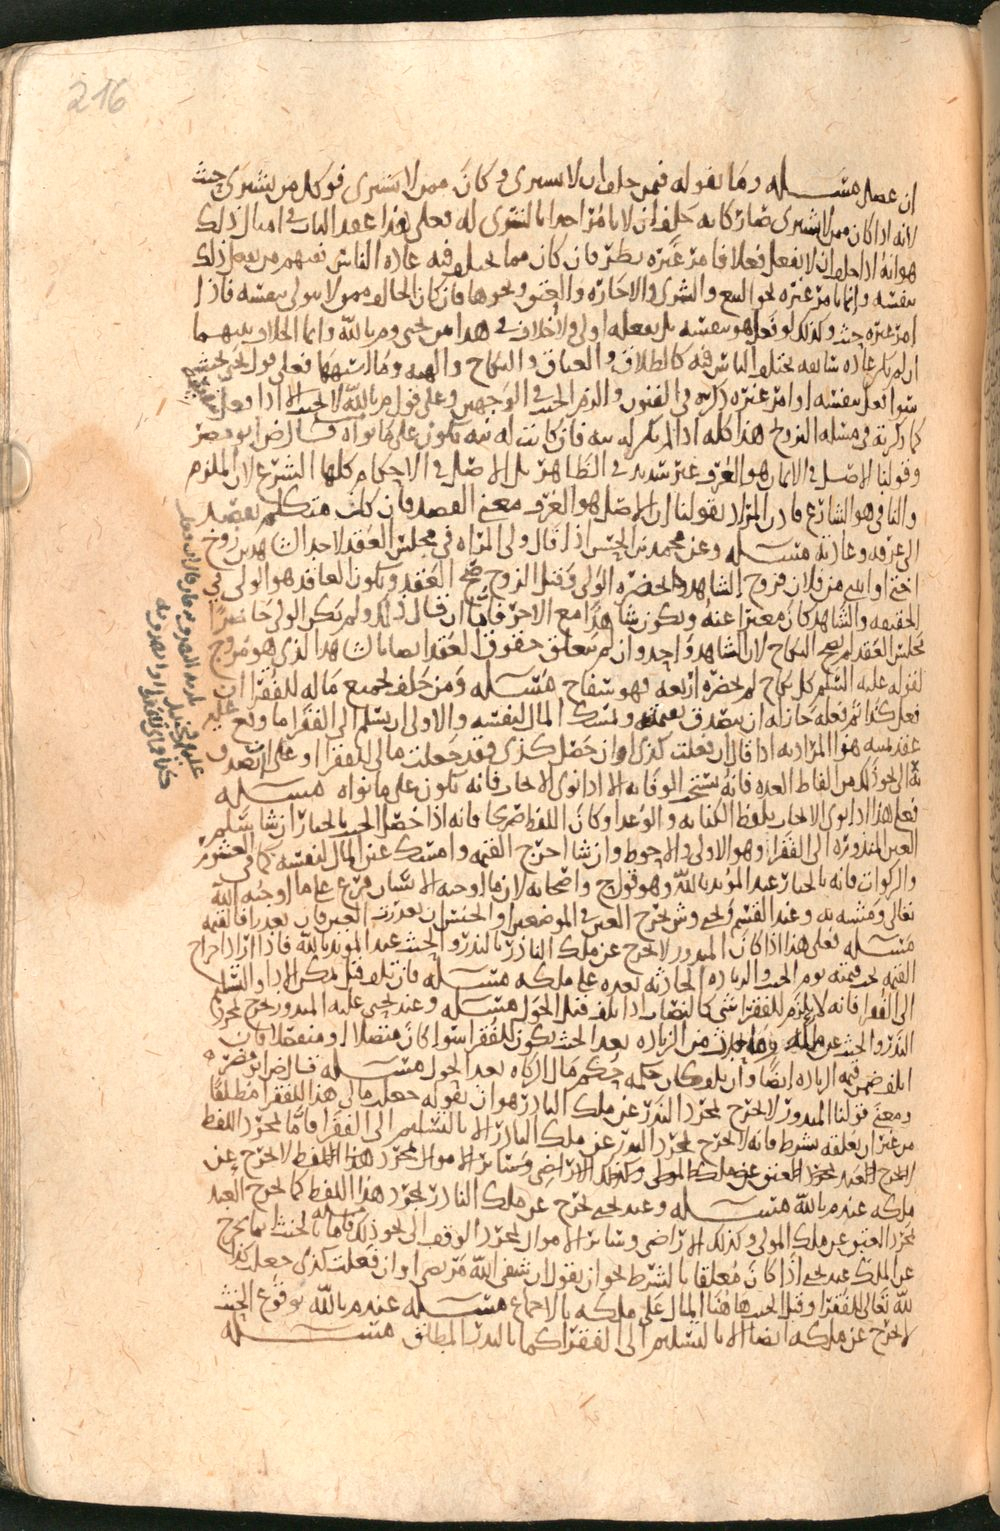 216
ان عصل مسـله وما يقوله فيمن حلف ان لا يشترى وكان ممن لا يشترى فوكل من يشترى حنث
لانه اذا كان ممن لا يشترى صار كانه حلف ان لا يامر احدا بالشرى له فعلى هذا عقد الباب فى امثال ذلك
هو انه اذا حلف ان لا يفعل فعلا فامر غيره نظر فان كان مما يختلف فيه عادة الناس فمنهم من يفعل ذلك
بنفسه وانما يامر غيره نحو البيع والشرى والاجارة والعتق ونحوها فان كان الحالف ممن لا يتولى بنفسه فاذا
امر غيره حنث وكذلك لو فعل هو بنفسه بل بفعله اولى ولا خلاف فى هذا من يحيى وم بالله وانما الخلاف بينهما
ان لم يكن عادة شايعه يختلف الناس فيه كالطلاق والعتاق والنكاح والهبه وما اشبهها فعلى قول يحيى يحنث
سوا فعل بنفسه او امر غيره ذكره فى الفنون والزم الحنث فى الوجهين وعلى قول م بالله لا يحنث الا اذا فعل
كما ذكرته فى مسله التزويج هذا كله اذا لم يكن له نيه فان كانت له نيه تكون على ما نواه قال رض ابو مضر
وقولنا الاصل فى الايمان هو العرف غير سديد فى الظاهر بل الاصل فى الاحكام كلها الشرع لان الملزم
والنافى هو الشارع فان المراد بقولنا ان الاصل هو العرف معنى القصد فان كل متكلم يقصد
الى عرفه وعادته مسـله وعن محمد بن الحسن اذا قال ولى المراه فى مجلس العقد لاحد الشاهدين زوج
اختى او ابنتى من فلان فزوج الشاهد والحضره الولى وقبل الزوج صح العقد ويكون العاقد هو الولى فى
الحقيقه والشاهد كان معبرا عنه ويكون شاهدا مع الاخر فاما ان قال ذلك ولم يكن الولى حاضرا
مجلس العقد لم يصح النكاح لان الشاهد واحد وان لم يتعلق حقوق العقد ايضا بالشاهد الذى هو مزوج
لقوله عليه السلم كل نكاح لم يحضره اربعه فهو سفاح مسـله ومن حلف بجميع ماله للفقرا ان
فعل كذا ثم فعله جاز له ان يتصدق بقيمته ويمسك المال لنفسه والاولى ان يسلم الى الفقرا ما وقع
عقد يمينه هو المراد به اذا قال ان فعلت كذى او ان حصل كذى فقد جعلت مالى للفقرا او على ان اتصدق
به الى نحو ذلك من الفاظ العده فانه يستحب الوفا به الا اذا نوى الايجاب فانه يكون على ما نواه مسـله
فعلى هذا اذا نوى الايجاب بلفظ الكنايه والوعد او كان اللفظ صريحا فانه اذا حصل الحنث بالخيار ان شا سلم
العين المنذوره الى الفقرا وهو الاولى والاحوط وان شا اخرج القيمه وامسك عين المال لنفسه كما فى العشور
والزكوات فانه بالخيار عند المويد بالله وهو قول ح واصحابه لان ما اوجبه الانسان فرع على ما اوجبه الله
تعالى ومشبه به وعند القسم ويحيى وش يخرج العين فى الموضعين او الجنس ان تعذرت العين فان تعذرا فالقيمه
مسـله فعلى هذا اذا كان المنذور لا يخرج عن ملك الناذر بالنذر والحنث عند المويد بالله فاذا اراد اخراج
القيمه يجب قيمته يوم الحنث والزياده الحادثه بعده على ملكه مسـله فان تلف قبل تمكن الادا والتسليم
الى الفقرا فانه لا يلزم للفقرا شى كالنصاب اذا تلف قبل الحول مسـله وعند يحيى عليه المنذور يخرج بمجرد
النذر والحنث عن ملكه وما يحدث من الزياده بعد الحنث يكون للفقرا سوا كان متصلا او منفصلا فان
اتلف ضمن قيمه الزياده ايضا وان تلف كان حكمه حكم مال الزكاه بعد الحول مسـله قال رض ابو مضر
ومعنى قولنا المنذور لا يخرج بمجرد النذر عن ملك الناذر هو ان يقوله جعلت مالى هذا للفقرا مطلقا
من غير ان يعلقه بشرط فانه لا يخرج بمجرد النذر عن ملك الناذر الا بالتسليم الى الفقرا فاما بمجرد اللفظ
لا يخرج العبد بمجرد العتق عن ملك المولى وكذلك الاراضى وسائر الاموال بمجرد هذا اللفظ لا يخرج عن
ملكه عند م بالله مسـله وعند يحيى يخرج عن ملك الناذر بمجرد هذا اللفظ كما يخرج العبد
بمجرد العتق عن ملك المولى وكذلك الاراضى وسائر الاموال بمجرد الوقف الى نحو ذلك فاما بالحنث انما يخرج
عن الملك عند يحيى اذا كان معلقا بالشرط نحو ان يقول ان شفى الله مريضى او ان فعلت كذى جعلت كذا
لله تعالى للفقرا وقبل الحنث هاهنا المال على ملكه بالاجماع مسـله عند م بالله بوقوع الحنث
لا يخرج عن ملكه ايضا الا بالتسليم الى الفقرا كما بالنذر المطلق مسـله